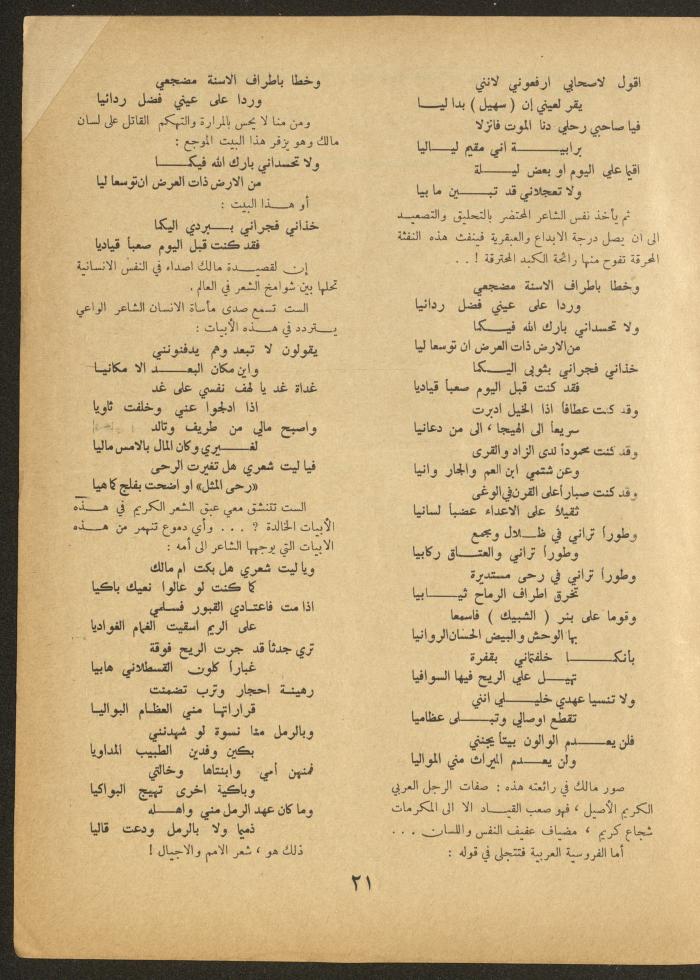 اقول لاصحابي ارفعوني لانني
يقر لعيني إن ( سهيل ) بدا ليـــا
فيا صاحبي رحلي دنا الموت فانزلا
برابيـــــــة اني مقيم ليـــاليا
اقيما علي اليوم او بعض ليـــــلة
ولا تعجلاني قد تبـــــين ما بيا
ثم يأخذ نفس الشاعر المحتضر بالتحليق والتصعيـد
الى ان يصل درجة الابداع والعبقرية فينفث هذه النفثة
المحرقة تفوح منها رائحة الكبد المحترقة ! . .
وخطا باطراف الاسنة مضجعي
وردا على عيني فضل ردانيا
ولا تحسداني بارك الله فيـــكما
من الارض ذات العرض ان توسعا ليا
خذاني فجراني بثوبي اليـــكما
فقد كنت قبل اليوم صعبأ قياديا
وقد كنت عطافأ اذا الخيل ادبرت
سريعأ الى الهيجا ، الى من دعانيا
وقد كنت محمودأ لدى الزاد والقرى
وعن شتمي ابن العم والجار وانيا
وقد كنت صبارأ على القرن في الوغى
ثقيلأ على الاعداء عضبأ لسانيا
وطورأ تراني في ظـــلال ومجمع
وطورأ تراني والعتـــاق ركابيا
وطورأ تراني في رحى مستديرة
تخرق اطراف الرماح ثيـــــابيا
وقوما على بئر ( الشبيك ) فاسمعا
بها الوحش والبيض الحسان الروانيا
بأنكـــــــا خلفتماني بقفرة
تهيـــل علي الريح فيها السوافيا
ولا تنسيا عهدي خليـــــلي انني
تقطع اوصالي وتبـــلى عظاميا
فلن يعـــــدم الوالون بيتأ يجنني
ولن يعـــدم الميراث مني المواليا
صور مالك في رائعته هذه : صفات الرجل العربي
الكريم الأصيل ، فهو صعب القيـــاد الا الى المكرمات
شجاع كريم ، مضياف عفيف النفس واللسان . . .
أما الفروسية العربية فتتجلى في قوله :
وخطا باطراف الاسنة مضجعي
وردا على عيني فضل ردائيا
ومن منا لا يحس بالمرارة والتهكم القاتل على لسان
مالك وهو يزفر هذا البيت الموجع :
ولا تحسداني بارك الله فيكـــــا
من الارض ذات العرض ان توسعا ليا
أو هـــذا البيت :
خذاني فجراني بـــــبردي اليكما
فقد كنت قبل اليوم صعبأ قياديا
إن لقصيـــدة مالك اصداء في النفس الانسانية
تحلها بين شوامخ الشعر في العالم .
الست تسمع صدى مأساة الانسان الشاعر الواعي
يـــتردد في هـــذه الأبيات :
يقولون لا تبعد وهم يدفنونني
واين مكان البعـــــد الا مكانيـا
غداة غد يا لهف نفسي على غد
اذا ادلجوا عني وخلفت ثاويا
واصبح مالي من طريف وتالد
لغـــــيري وكان المال بالامس ماليا
فيا ليت شعري هل تغيرت الرحى
«رحى المثل» او اضحت بفلج كما هيا
الست تتنشق معي عبق الشعر الكريم في هـــذه
الأبيات الخالدة ؟ . . . وأي دموع تنهمر من هـــذه
الابيات التي يوجهها الشاعر الى أمه :
ويا ليت شعري هل بكت ام مالك
كما كنت لو عالوا نعيك باكيا
اذا مت فاعتـادي القبور فسـلمي
على الريم اسقيت الغمام الغواديا
تري جدثأ قد جرت الريح فوقة
غبارأ كلون القسطلاني هابيا
رهينـة احجار وترب تضمنت
قراراتهـا مني العظـام البواليـا
وبالرمل منا نسوة لو شهدنني
بكين وفدين الطبيب المداويا
فمنهن أمي وابنتاها وخالتي
وباكية اخرى تهيج البواكيا
وما كان عهد الرمل مني واهـــله
ذميما ولا بالرمل ودعت قاليا
ذلك هو ، شعر الامم والاجيال !
٢١